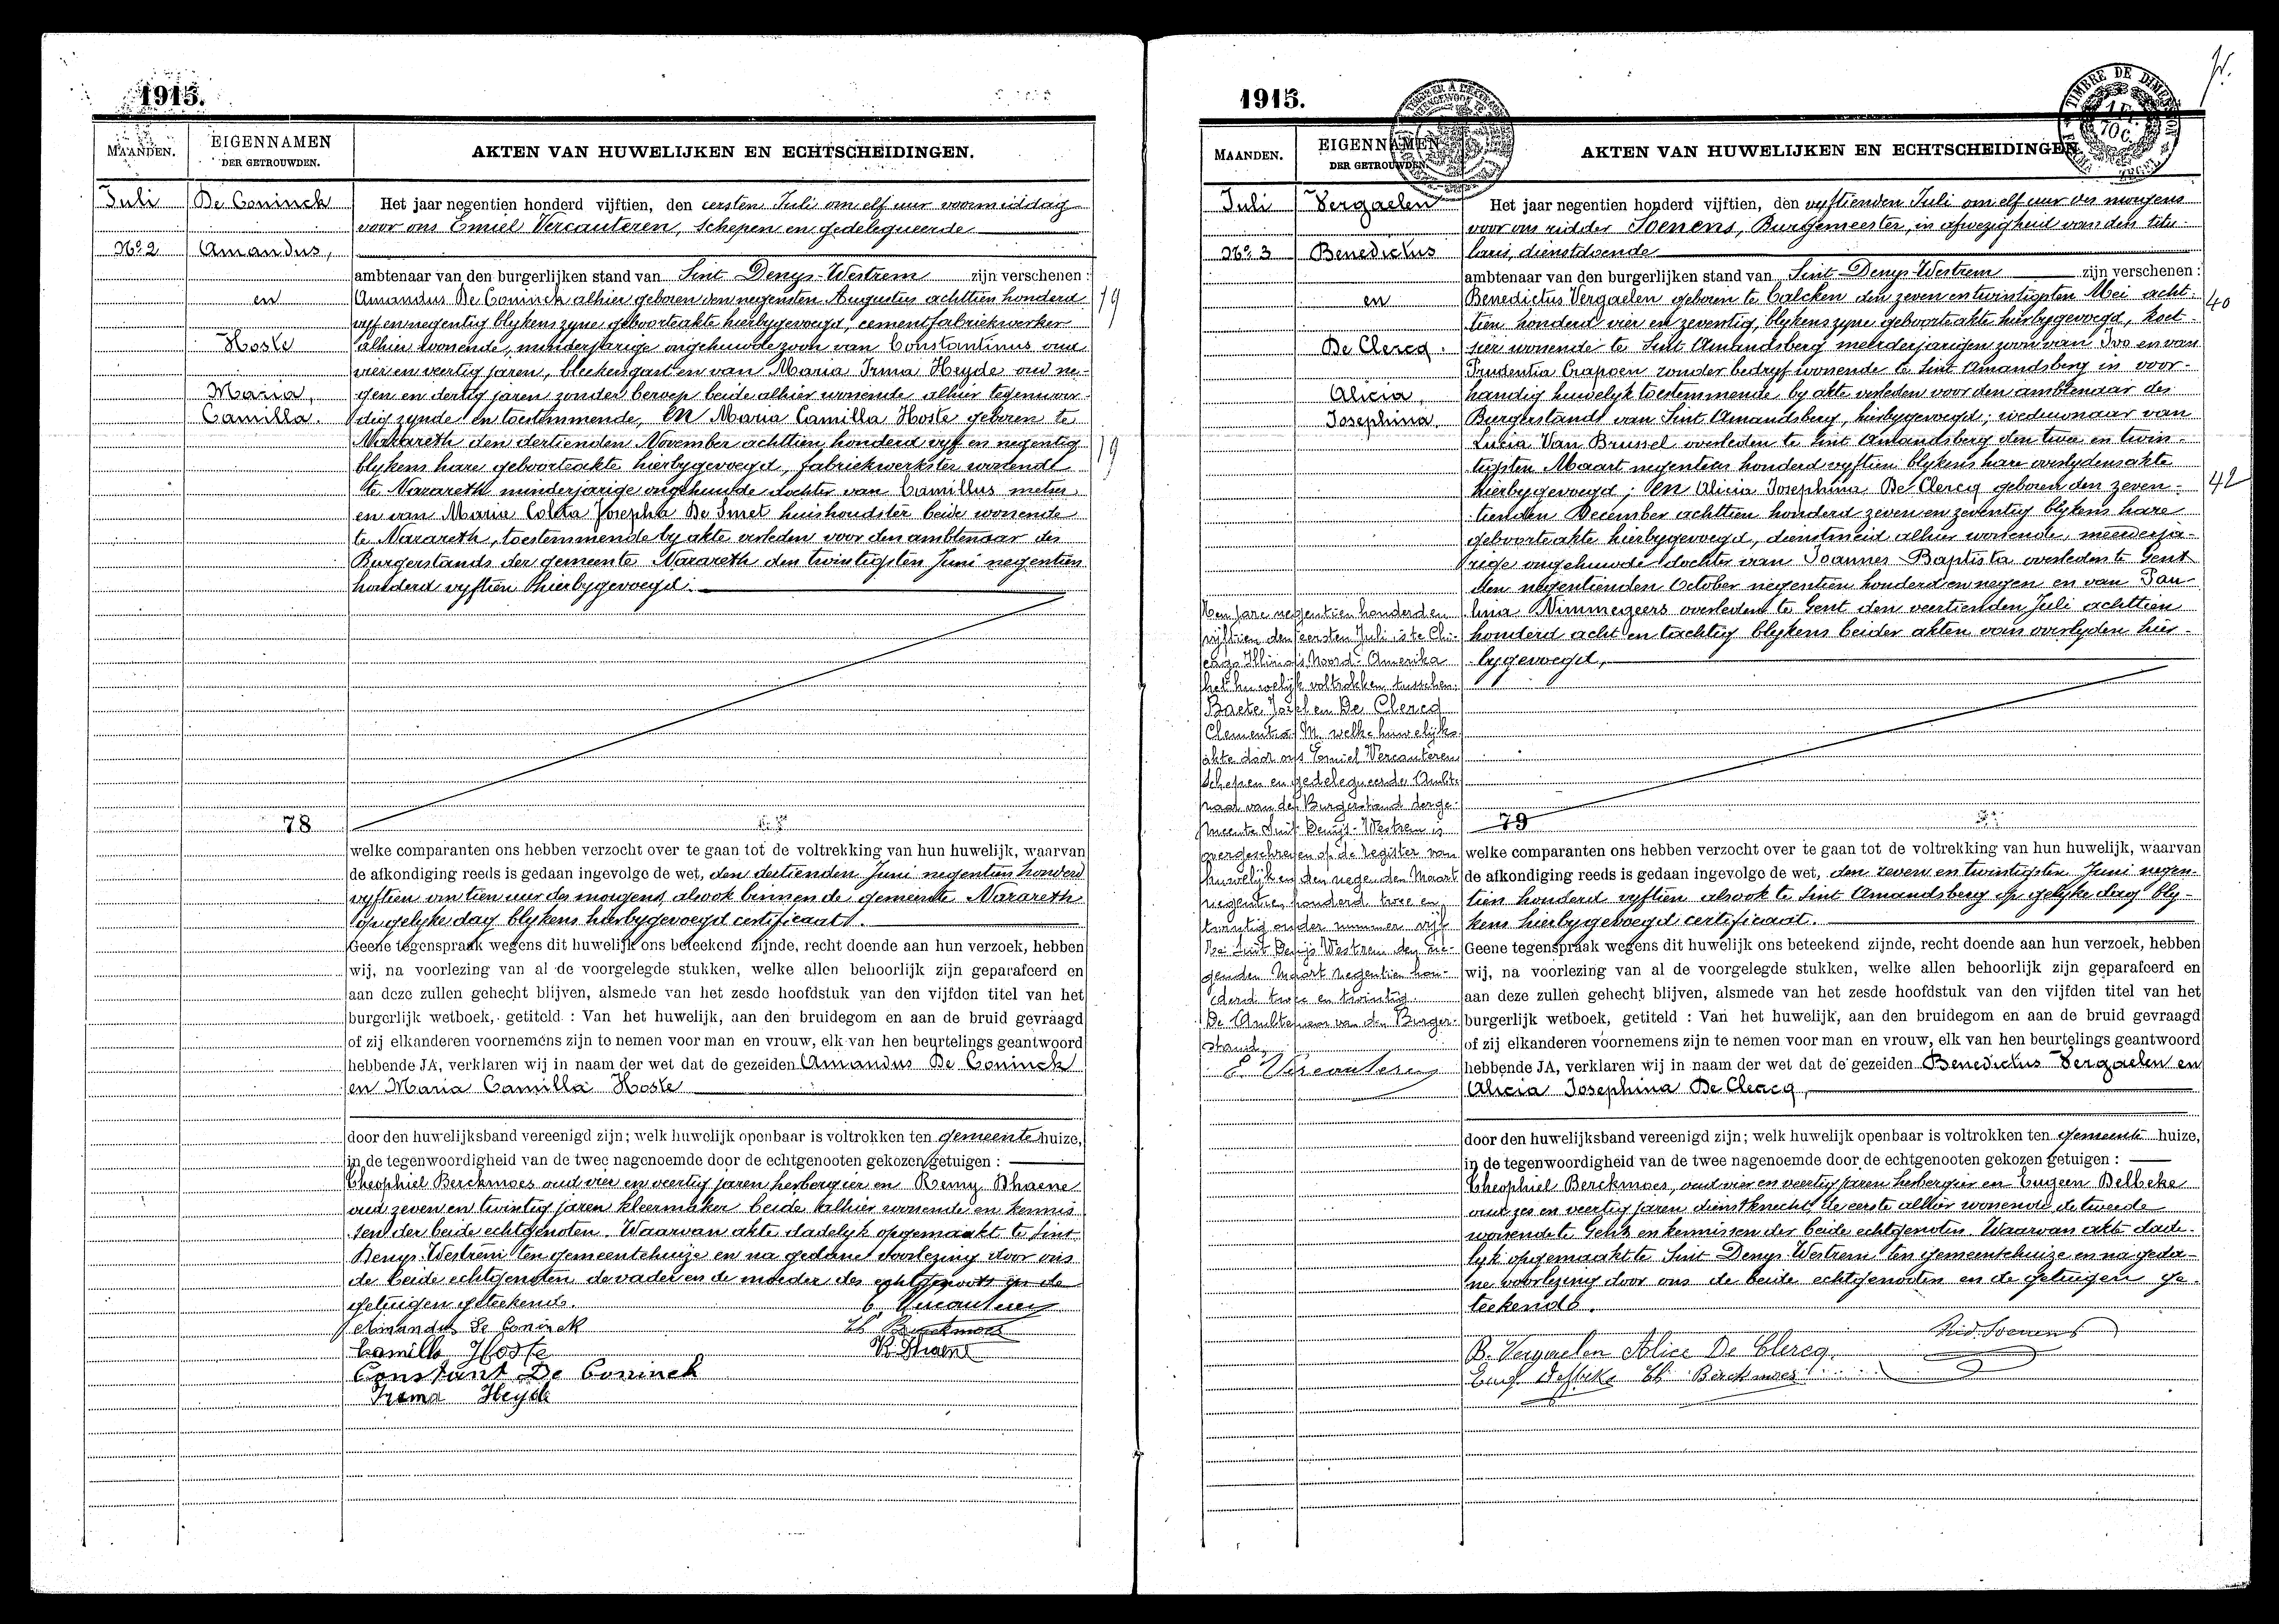 1915.
MAANDEN.
EIGENNAMEN
DER GETROUWDEN.
AKTEN VAN HUWELIJKEN EN ECHTSCHEIDINGEN.
Juli
De Coninck
Het jaar negentien honderd vijftien, den eersten Juli om elf uur voormiddag
voor ons Emiel Vercauteren, Schepen en gedelegueerde
No 2
Amandus,
ambtenaar van den burgerlijken stand van Sint Denys-Westrem zijn verschenen :
en
Amandus De Coninck alhier geboren den negensten Augustus achttien honderd
19
vyf en negentig blykens zyne geboorteakte hierbygevoegd, cementfabriekwerker
Hoste
alhier wonende, minderjarige ongehuwde zoon van Constantinus oud
vier en veertig jaren, bleekersgast en van Maria Irma Heyde oud ne-
Maria,
gen en dertig jaren zonder beroep beide alhier wonende alhier tegenwoor-
Camilla.
dig zynde en toestemmende, en Maria Camilla Hoste geboren te
Nazareth den dertienden November achttien honderd vyf en negentig
19
blykens hare geboorteakte hierbygevoegd, fabriekwerkster wonende
te Nazareth minderjarige ongehuwde dochter van Camillus metser
en van Maria Coleta Josepha De Smet huishoudster beide wonende
te Nazareth, toestemmende by akte verleden voor den ambtenaar des
Burgerstands der gemeente Nazareth den twintigsten Juni negentien
honderd vyftien hierbygevoegd.
78
welke comparanten ons hebben verzocht over te gaan tot de voltrekking van hun huwelijk, waarvan
de afkondiging reeds is gedaan ingevolge de wet, den dertienden Juni negentien honderd
vyftien om tien uur des morgens, alsook binnen de gemeente Nazareth
op gelyke dag blykens hierbygevoegd certificaat.
Geene tegenspraak wegens dit huwelijk ons beteekend zijnde, recht doende aan hun verzoek, hebben
wij, na voorlezing van al de voorgelegde stukken, welke allen behoorlijk zijn geparafeerd en
aan deze zullen gehecht blijven, alsmede van het zesde hoofdstuk van den vijfden titel van het
burgerlijk wetboek, getiteld : Van het huwelijk, aan den bruidegom en aan de bruid gevraagd
of zij elkanderen voornemens zijn te nemen voor man en vrouw, elk van hen beurtelings geantwoord
hebbende JA, verklaren wij in naam der wet dat de gezeiden Amandus De Coninck
en Maria Camilla Hoste
door den huwelijksband vereenigd zijn; welk huwelijk openbaar is voltrokken ten gemeentehuize,
in de tegenwoordigheid van de twee nagenoemde door de echtgenooten gekozen getuigen :
Theophiel Berckmoes oud vier en veertig jaren herbergier en Remy Dhaene
oud zeven en twintig jaren kleermaker beide alhier wonende en kennis
sen der beide echtgenoten. Waarvan akte dadelyk opgemaakt te Sint
Denys-Westrem ten gemeentehuize en na gedane voorlezing door ons
de beide echtgenoten de vader en de moeder des echtgenoots en de
getuigen geteekend.
E. Vercauteren
Amandus De Coninck
Th Berckmoes
Camilla Hoste
R Dhaene
Constant De Coninck
Irema Heyde
1915.
MAANDEN.
EIGENNAMEN
DER GETROUWDEN.
AKTEN VAN HUWELIJKEN EN ECHTSCHEIDINGEN
TIMBRE DE DIMENSION
Juli
Vergaelen
Het jaar negentien honderd vijftien, den vyftienden Juli om elf uur des morgens
voor ons ridder Soenens, Burgemeester, in afwezigheid van den titu-
No 3
Benedictus
laris, dienstdoende
ambtenaar van den burgerlijken stand van Sint-Denys-Westrem zijn verschenen :
en
Benedictus Vergaelen geboren te Calcken den zeven en twintigsten Mei acht-
40
tien honderd vier en zeventig, blykens zyne geboorteakte hierbygevoegd, koet-
De Clercq.
sier wonende te Sint Amandsberg meerderjarigen zoon van Ivo en van
Prudentia Crapoen zonder bedryf wonende te Sint Amandsberg in voor-
Alicia,
handig huwelyk toestemmende by akte verleden voor den ambtenaar des
Josephina,
Burgerstands van Sint Amandsberg, hierbygevoegd; weduwnaar van
Lucia Van Brussel overleden te Sint Amandsberg den twee en twin-
tigsten Maart negentien honderd vyftien blykens hare overlydensakte
hierbygevoegd; en Alicia Josephina De Clercq geboren den zeven-
42
tienden December achttien honderd zeven en zeventig blykens hare
geboorteakte hierbygevoegd, dienstmeid alhier wonende, meerderja-
rige ongehuwde dochter van Joannes-Baptista overleden te Gent
den negentienden October negentien honderd en negen en van Pau-
lina Nimmegeers overleden te Gent den veertienden Juli achttien
honderd acht en tachtig blykens beider akten van overlyden hier-
bygevoegd,
Den jare negentien honderd en
vijftien den eersten Juli is te Chi-
cago Illinois Noord-Amerika
het huwelijk voltrokken tusschen
Baete Jozef en De Clercq
Clementia M. welke huwelijks
akte door ons Emiel Vercauteren
Schepen en gedelegueerder Ambte
naar van den Burgerstand der ge-
meente Sint Denijs-Westrem is
overgeschreven op de register van
huwelijken den negenden Maart
negentien honderd twee en
twintig onder nummer vijf
Te Sint Denijs Westrem den ne-
genden Maart negentien hon-
derd twee en twintig.
De Ambtenaar van den Burger-
stand,
E. Vercauteren
79
welke comparanten ons hebben verzocht over te gaan tot de voltrekking van hun huwelijk, waarvan
de afkondiging reeds is gedaan ingevolge de wet, den zeven en twintigsten Juni negen-
tien honderd vyftien alsook te Sint Amandsberg op gelyke dag bly-
kens hierbygevoegd certificaat.
Geene tegenspraak wegens dit huwelijk ons beteekend zijnde, recht doende aan hun verzoek, hebben
wij, na voorlezing van al de voorgelegde stukken, welke allen behoorlijk zijn geparafeerd en
aan deze zullen gehecht blijven, alsmede van het zesde hoofdstuk van den vijfden titel van het
burgerlijk wetboek, getiteld : Van het huwelijk, aan den bruidegom en aan de bruid gevraagd
of zij elkanderen voornemens zijn te nemen voor man en vrouw, elk van hen beurtelings geantwoord
hebbende JA, verklaren wij in naam der wet dat de gezeiden Benedictus Vergaelen en
Alicia Josephina De Clercq,
door den huwelijksband vereenigd zijn; welk huwelijk openbaar is voltrokken ten gemeente huize,
in de tegenwoordigheid van de twee nagenoemde door de echtgenooten gekozen getuigen :
Theophiel Berckmoes, oud vier en veertig jaren herbergier en Eugeen Delbeke
oud zes en veertig jaren dienstknecht de eerste alhier wonende de tweede
wonende te Gent en kennissen der beide echtgenoten. Waarvan akte dade-
lyk opgemaakt te Sint Denys-Westrem ten gemeentehuize en na geda-
ne voorlezing door ons de beide echtgenooten en de getuigen ge-
teekend.
Rid. Soenens
B. Vergaelen Alice De Clercq.
Eug. Delbeke Th Berckmoes